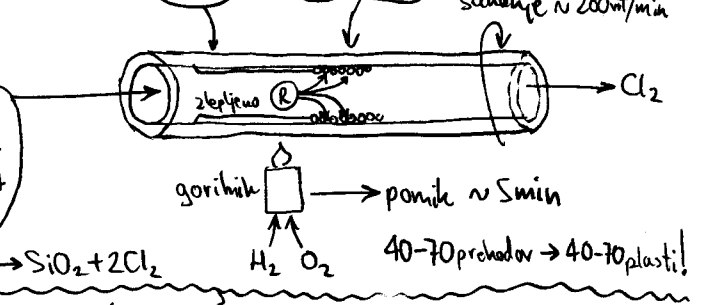 ~ 200ml/min
Cl₂
zlepljeno
R
gorilnik
pomik ~ 5min
→SiO₂+2Cl₂
H₂ O₂
40-70 prehodov → 40-70 plasti!